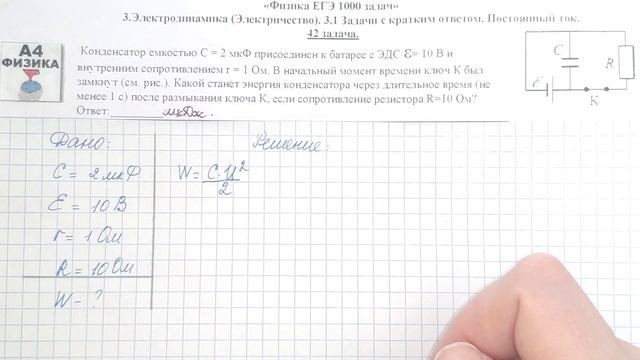 «Физика ЕГЭ 1000 задач»
3.Электродинамика (Электричество). 3.1 Задачи с кратким ответом. Постоянный ток.
42 задача.
А4
ФИЗИКА
Конденсатор емкостью C = 2 мкФ присоединен к батарее с ЭДС Ɛ= 10 В и
внутренним сопротивлением r = 1 Ом. В начальный момент времени ключ К был
замкнут (см. рис.). Какой станет энергия конденсатора через длительное время (не
менее 1 с) после размыкания ключа К, если сопротивление резистора R=10 Ом?
Ответ:________ мкДж.
C
R
Ɛ
К
Дано:
C = 2 мкФ
Ɛ = 10 В
r = 1 Ом
R = 10 Ом
W - ?
Решение:
W = C·U²/2